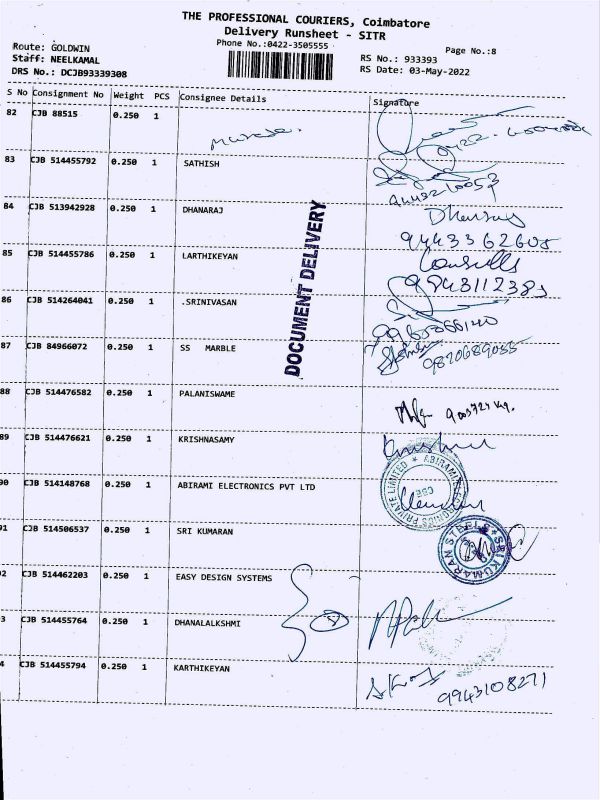 THE PROFESSIONAL COURIERS, Coimbatore
Delivery Runsheet - SITR
Phone No.:0422-3505555
Page No.:8
Route: GOLDWIN
Staff: NEELKAMAL
DRS No.: DCJB93339308
RS No.: 933393
RS Date: 03-May-2022
S No Consignment No Weight PCS Consignee Details Signature
82 CJB 88515 0.250 1
83 CJB 514455792 0.250 1 SATHISH
9443210053
84 CJB 513942928 0.250 1 DHANARAJ Dhanraj
9443362605
85 CJB 514455786 0.250 1 LARTHIKEYAN
9843112381
86 CJB 514264041 0.250 1 .SRINIVASAN
87 CJB 84966072 0.250 1 SS MARBLE
9820689055
88 CJB 514476582 0.250 1 PALANISWAME
89 CJB 514476621 0.250 1 KRISHNASAMY
90 CJB 514148768 0.250 1 ABIRAMI ELECTRONICS PVT LTD
91 CJB 514506537 0.250 1 SRI KUMARAN
SRI KUMARAN STEELS
2 CJB 514462203 0.250 1 EASY DESIGN SYSTEMS
3 CJB 514455764 0.250 1 DHANALALKSHMI
4 CJB 514455794 0.250 1 KARTHIKEYAN
9943108271
DOCUMENT DELIVERY